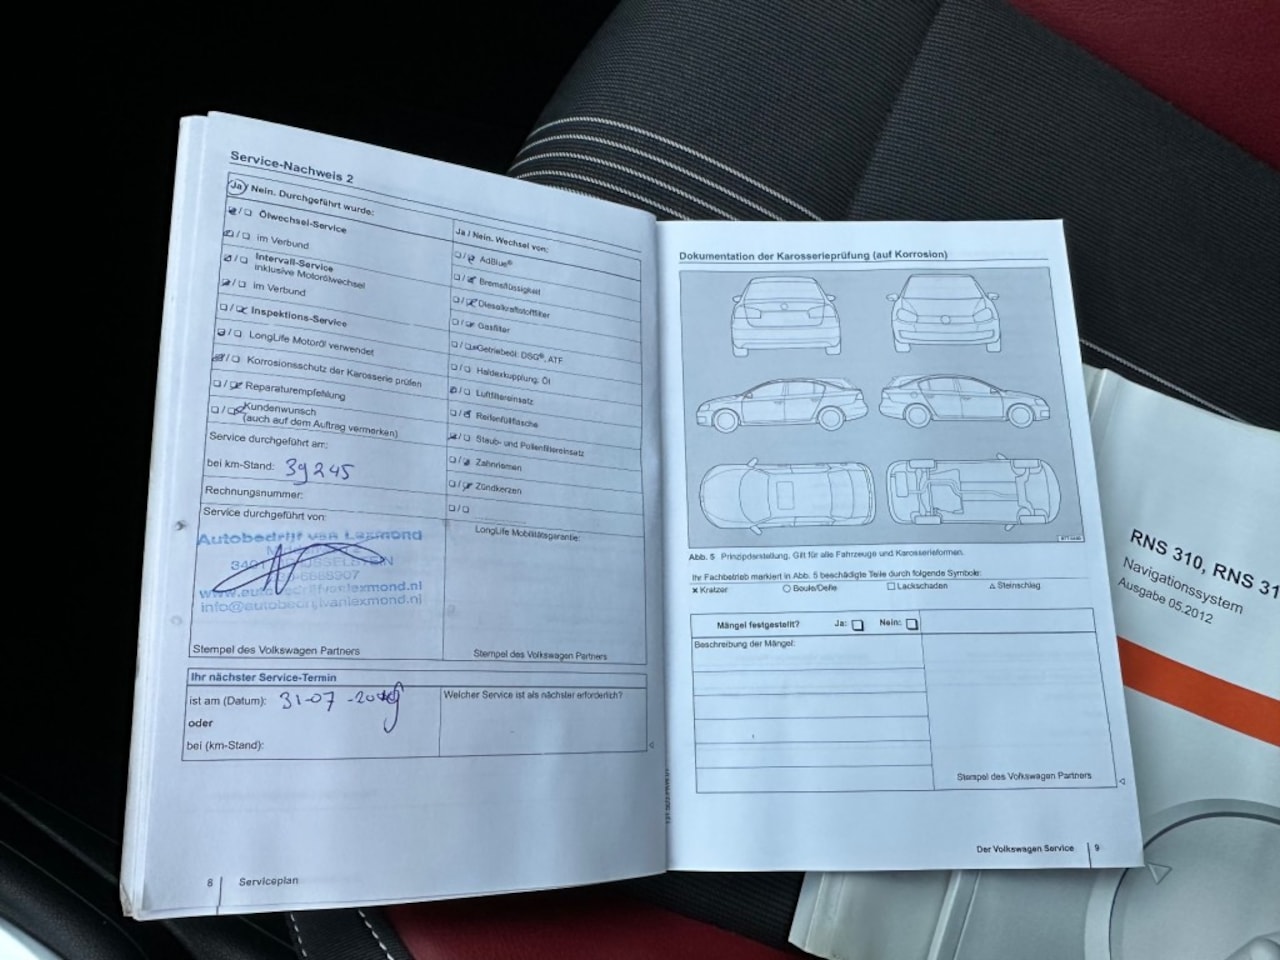 Service-Nachweis 2
Ja / Nein. Durchgeführt wurde:
Ölwechsel-Service
im Verbund
Intervall-Service
inklusive Motorölwechsel
im Verbund
Inspektions-Service
LongLife Motoröl verwendet
Korrosionsschutz der Karosserie prüfen
Reparaturempfehlung
Kundenwunsch
(auch auf dem Auftrag vermerken)
Service durchgeführt am:
bei km-Stand: 39245
Rechnungsnummer:
Service durchgeführt von:
Autobedrijf van Lexmond
www.autobedrijfvanlexmond.nl
info@autobedrijfvanlexmond.nl
Stempel des Volkswagen Partners
Ja / Nein. Wechsel von:
AdBlue®
Bremsflüssigkeit
Dieselkraftstofffilter
Gasfilter
Getriebeöl: DSG®, ATF
Haldexkupplung: Öl
Luftfiltereinsatz
Reifenfüllflasche
Staub- und Pollenfiltereinsatz
Zahnriemen
Zündkerzen
LongLife Mobilitätsgarantie:
Stempel des Volkswagen Partners
Ihr nächster Service-Termin
ist am (Datum): 31-07
oder
bei (km-Stand):
Welcher Service ist als nächster erforderlich?
Serviceplan
Dokumentation der Karosserieprüfung (auf Korrosion)
Abb. 5 Prinzipdarstellung. Gilt für alle Fahrzeuge und Karosserieformen.
Ihr Fachbetrieb markiert in Abb. 5 beschädigte Teile durch folgende Symbole:
× Kratzer ○ Beule/Delle □ Lackschaden △ Steinschlag
Mängel festgestellt? Ja: Nein:
Beschreibung der Mängel:
Stempel des Volkswagen Partners
Der Volkswagen Service 9
RNS 310, RNS 31
Navigationssystem
Ausgabe 05.2012